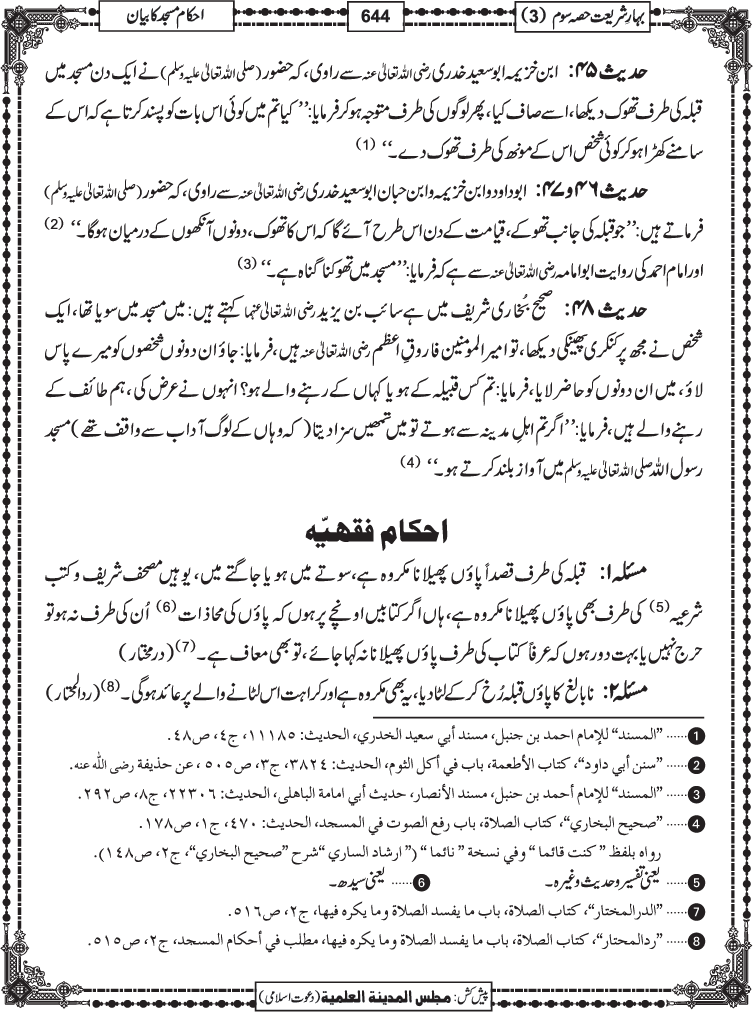 بہار شریعت حصہ سوم (3)
644
احکام مسجد کا بیان
حدیث ۴۵: ابن خزیمہ ابو سعید خدری رضی اللہ تعالیٰ عنہ سے راوی، کہ حضور (صلی اللہ تعالیٰ علیہ وسلم) نے ایک دن مسجد میں
قبلہ کی طرف تھوک دیکھا، اسے صاف کیا، پھر لوگوں کی طرف متوجہ ہو کر فرمایا: ’’کیا تم میں کوئی اس بات کو پسند کرتا ہے کہ اس کے
سامنے کھڑا ہو کر کوئی شخص اس کے مونھ کی طرف تھوک دے۔‘‘ (1)
حدیث ۴۶ و ۴۷: ابوداود و ابن خزیمہ و ابن حبان ابو سعید خدری رضی اللہ تعالیٰ عنہ سے راوی، کہ حضور (صلی اللہ تعالیٰ علیہ وسلم)
فرماتے ہیں: ’’جو قبلہ کی جانب تھوکے، قیامت کے دن اس طرح آئے گا کہ اس کا تھوک، دونوں آنکھوں کے درمیان ہوگا۔‘‘ (2)
اور امام احمد کی روایت ابو امامہ رضی اللہ تعالیٰ عنہ سے ہے کہ فرمایا: ’’مسجد میں تھوکنا گناہ ہے۔‘‘ (3)
حدیث ۴۸: صحیح بُخاری شریف میں ہے سائب بن یزید رضی اللہ تعالیٰ عنہما کہتے ہیں: میں مسجد میں سویا تھا، ایک
شخص نے مجھ پر کنکری پھینکی دیکھا، تو امیر المومنین فاروقِ اعظم رضی اللہ تعالیٰ عنہ ہیں، فرمایا: جاؤ ان دونوں شخصوں کو میرے پاس
لاؤ، میں ان دونوں کو حاضر لایا، فرمایا: تم کس قبیلہ کے ہو یا کہاں کے رہنے والے ہو؟ انہوں نے عرض کی، ہم طائف کے
رہنے والے ہیں، فرمایا: ’’اگر تم اہلِ مدینہ سے ہوتے تو میں تمھیں سزا دیتا (کہ وہاں کے لوگ آداب سے واقف تھے) مسجد
رسول اللہ صلی اللہ تعالیٰ علیہ وسلم میں آواز بلند کرتے ہو۔‘‘ (4)
احکام فقہیّہ
مسئلہ ۱: قبلہ کی طرف قصداً پاؤں پھیلانا مکروہ ہے، سوتے میں ہو یا جاگتے میں، یوہیں مصحف شریف و کتب
شرعیہ (5) کی طرف بھی پاؤں پھیلانا مکروہ ہے، ہاں اگر کتابیں اونچے پر ہوں کہ پاؤں کی محاذات (6) اُن کی طرف نہ ہو تو
حرج نہیں یا بہت دور ہوں کہ عرفاً کتاب کی طرف پاؤں پھیلانا نہ کہا جائے، تو بھی معاف ہے۔ (7) (درمختار)
مسئلہ ۲: نابالغ کا پاؤں قبلہ رُخ کر کے لٹا دیا، یہ بھی مکروہ ہے اور کراہت اس لٹانے والے پر عائد ہوگی۔ (8) (ردالمحتار)
1 ...... ”المسند“ للإمام احمد بن حنبل، مسند أبي سعيد الخدري، الحديث: ١١١٨٥، ج٤، ص٤٨.
2 ...... ”سنن أبي داود“، كتاب الأطعمة، باب في أكل الثوم، الحديث: ٣٨٢٤، ج٣، ص٥٠٥، عن حذيفة رضى الله عنه.
3 ...... ”المسند“ للإمام أحمد بن حنبل، مسند الأنصار، حديث أبي امامة الباهلى، الحديث: ٢٢٣٠٦، ج٨، ص٢٩٢.
4 ...... ”صحيح البخاري“، كتاب الصلاة، باب رفع الصوت في المسجد، الحديث: ٤٧٠، ج١، ص١٧٨.
رواه بلفظ ” كنت قائما “ وفي نسخة ” نائما “ (” ارشاد الساري “شرح ”صحيح البخاري“، ج٢، ص١٤٨).
5 ...... یعنی تفسیر و حدیث وغیرہ۔ 6 ...... یعنی سیدھ۔
7 ...... ”الدرالمختار“، كتاب الصلاة، باب ما يفسد الصلاة وما يكره فيها، ج٢، ص٥١٦.
8 ...... ”ردالمحتار“، كتاب الصلاة، باب ما يفسد الصلاة وما يكره فيها، مطلب في أحكام المسجد، ج٢، ص٥١٥.
پیش کش: مجلس المدینۃ العلمیۃ (دعوت اسلامی)